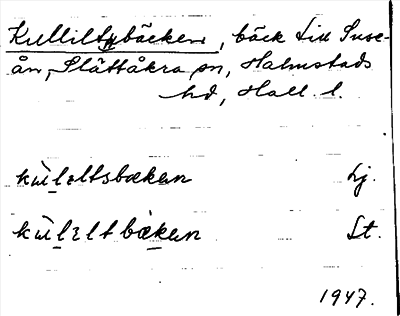 Kulliltsbäcken, bäck till Suse-
ån, Slättåkra sn, Halmstads
hd, Hall. l.
kùlɛltsbækən Lj.
kùlɛltbækən St.
1947.